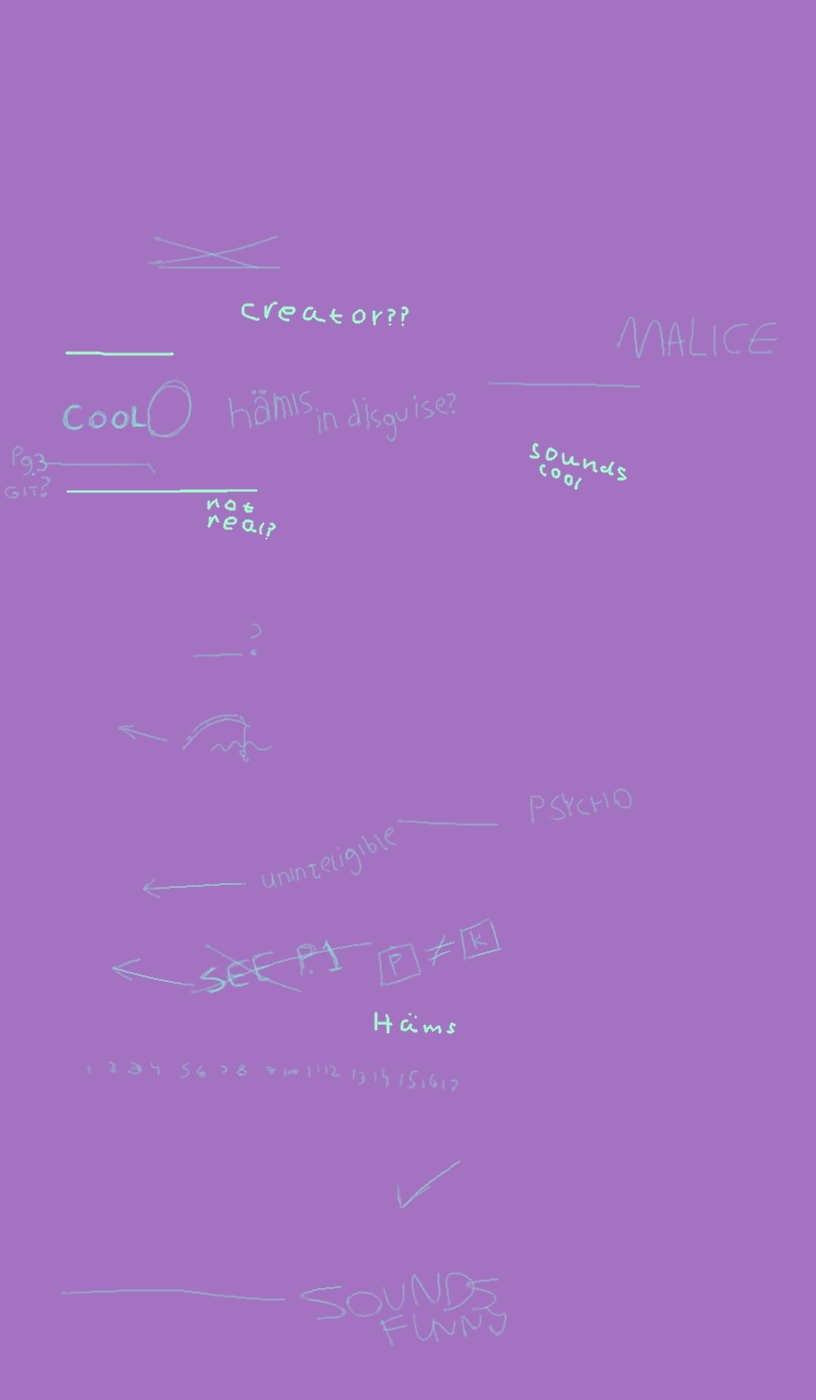 creator??
MALICE
COOL
hämls in disguise?
sounds
cool
Pg.3
GIT?
not
real?
?
PSYCHO
uninteligible
SEE P.1 P ≠ K
Häms
1 2 3 4 5 6 7 8 9 10 11 12 13 14 15 16 17
SOUNDS
FUNNY